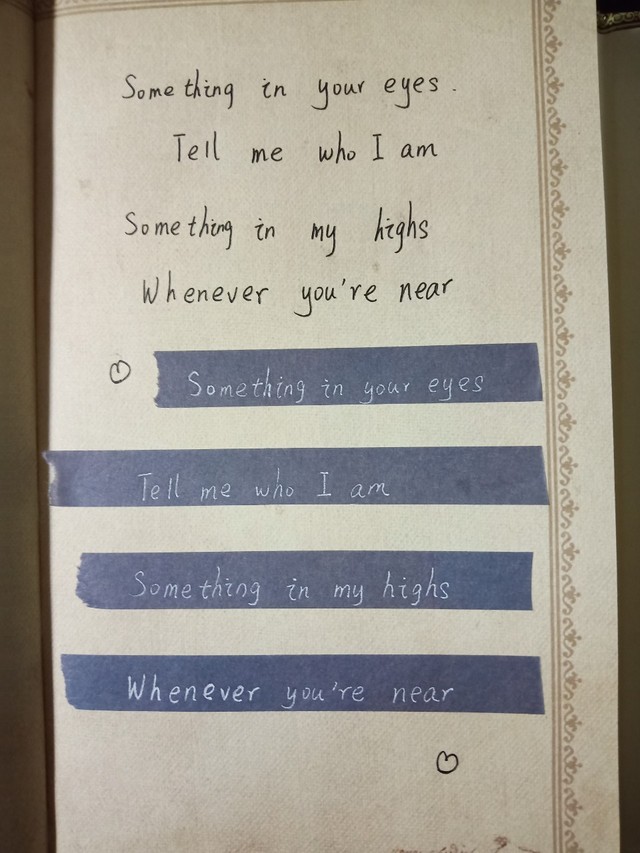 Something in your eyes.
Tell me who I am
Something in my highs
Whenever you're near
Something in your eyes
Tell me who I am
Something in my highs
Whenever you're near